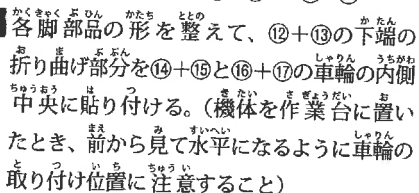 各脚部品の形を整えて、⑫+⑬の下端の
折り曲げ部分を⑭+⑮と⑯+⑰の車輪の内側
中央に貼り付ける。（機体を作業台に置い
たとき、前から見て水平になるように車輪の
取り付け位置に注意すること）